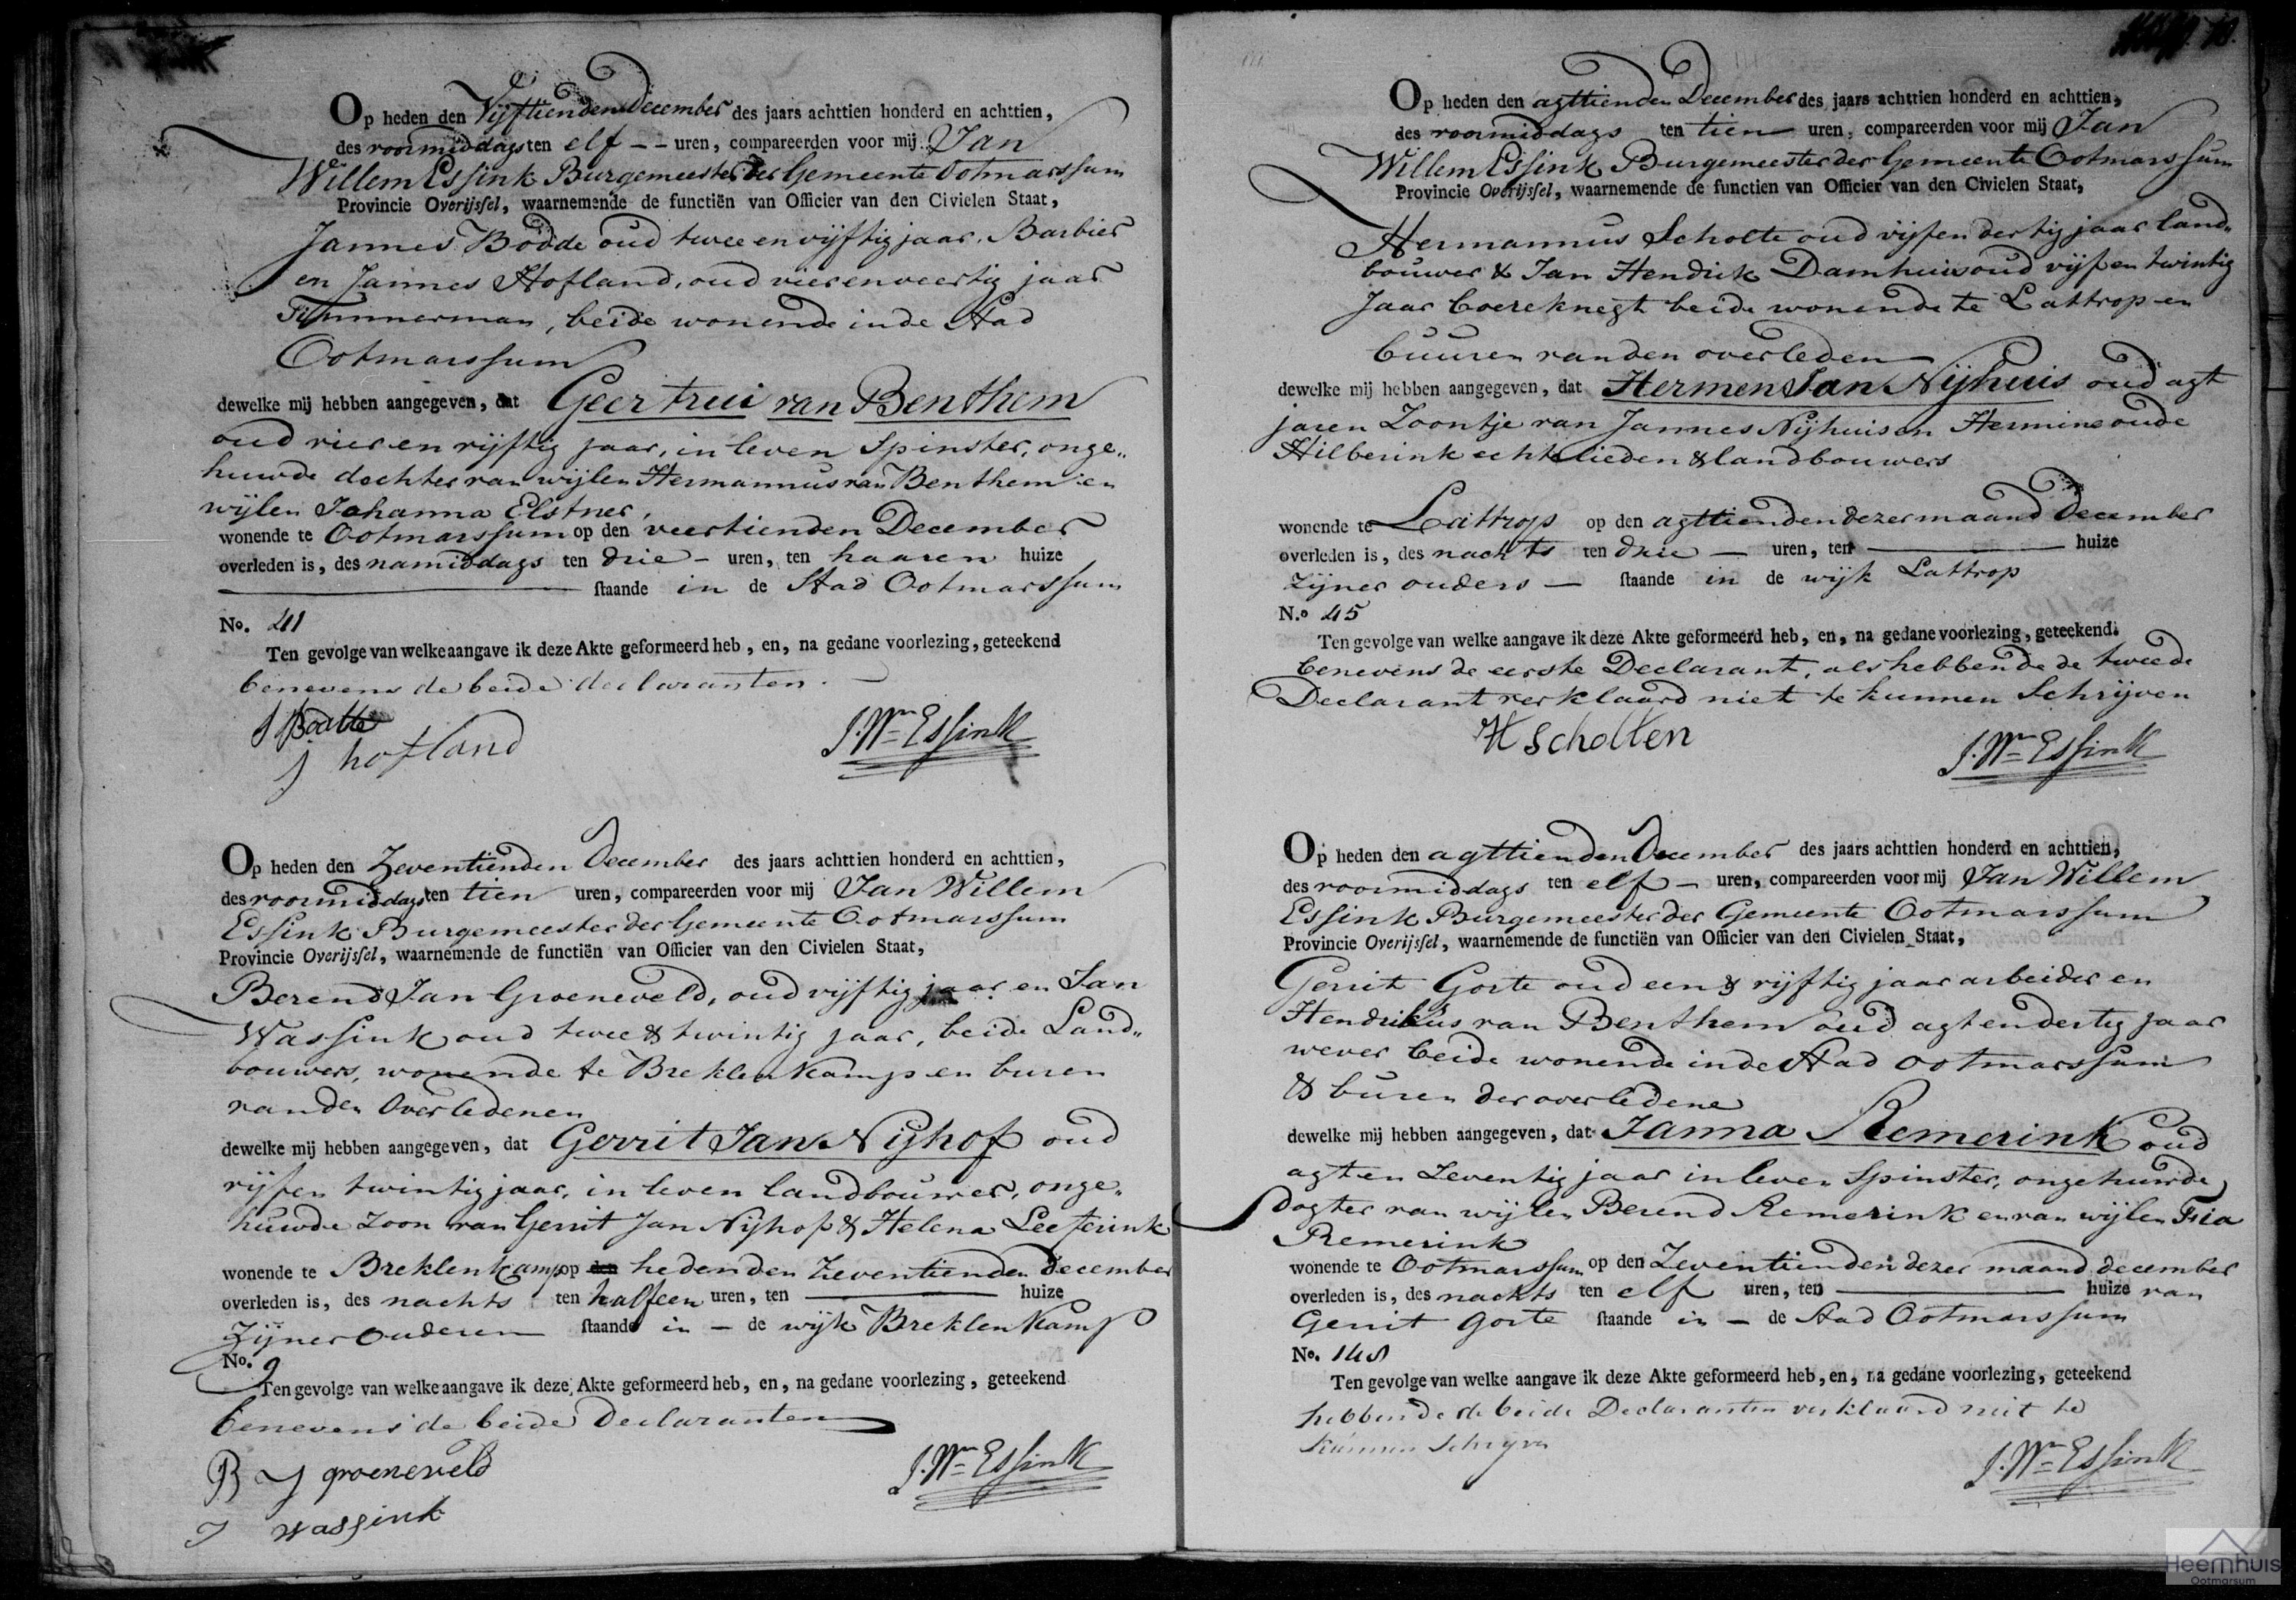 Op heden den Vijftienden December des jaars achttien honderd en achttien,
des voormiddags ten elf -- uren, compareerden voor mij Jan
Willem Essink Burgemeester der Gemeente Ootmarssum
Provincie Overijssel, waarnemende de functiën van Officier van den Civielen Staat,
Jannes Bodde oud twee en vijftig jaar, Barbier
en Jannes Hofland, oud vier en veertig jaar
Timmerman, beide wonende in de Stad
Ootmarssum
dewelke mij hebben aangegeven, dat Geertrui van Benthem
oud vier en vijftig jaar, in leven Spinster, onge„
huwde dochter van wijlen Hermannus van Benthem en
wijlen Johanna Elstner,
wonende te Ootmarssum op den veertienden December
overleden is, des namiddags ten drie - uren, ten haaren huize
staande in de Stad Ootmarssum
No. 41
Ten gevolge van welke aangave ik deze Akte geformeerd heb, en, na gedane voorlezing, geteekend
benevens de beide declaranten.
J Bodde
j hofland
J. Wm Essink
Op heden den Zeventienden December des jaars achttien honderd en achttien,
des voormiddags ten tien uren, compareerden voor mij Jan Willem
Essink Burgemeester der Gemeente Ootmarssum
Provincie Overijssel, waarnemende de functiën van Officier van den Civielen Staat,
Berend Jan Groeneveld, oud vijftig jaar en Jan
Wassink oud twee & twintig jaar, beide Land„
bouwers, wonende te Breklenkamp en buren
van den Overledenen
dewelke mij hebben aangegeven, dat Gerrit Jan Nijhof oud
vijf en twintig jaar, in leven landbouwer, onge„
huwde Zoon van Gerrit Jan Nijhof & Helena Leeferink
wonende te Breklenkamp op den heden den Zeventienden December
overleden is, des nachts ten half een uren, ten huize
Zijner Ouderen staande in - de wijk Breklenkamp
No. 9
Ten gevolge van welke aangave ik deze Akte geformeerd heb, en, na gedane voorlezing, geteekend
benevens de beide Declaranten
B J groeneveld
J wassink
J. Wm Essink
Op heden den agttienden December des jaars achttien honderd en achttien,
des voormiddags ten tien uren, compareerden voor mij Jan
Willem Essink Burgemeester der Gemeente Ootmarssum
Provincie Overijssel, waarnemende de functien van Officier van den Civielen Staat,
Hermannus Scholte oud vijf en dertig jaar land„
bouwer & Jan Hendrik Damhuis oud vijf en twintig
Jaar boereknegt beide wonende te Lattrop en
buuren van den overleden
dewelke mij hebben aangegeven, dat Hermen Jan Nijhuis oud agt
jaren Zoontje van Jannes Nijhuis en Hermine oude
Hilberink echtelieden & landbouwers
wonende te Lattrop op den agttienden dezer maand December
overleden is, des nachts ten drie - uren, ten huize
Zijner ouders - staande in de wijk Lattrop
N.o 45
Ten gevolge van welke aangave ik deze Akte geformeerd heb, en, na gedane voorlezing, geteekend.
benevens de eerste Declarant, als hebbende de tweede
Declarant verklaard niet te kunnen Schrijven
H Scholten
J. Wm Essink
Op heden den agttienden December des jaars achttien honderd en achttien,
des voormiddags ten elf - uren, compareerden voor mij Jan Willem
Essink Burgemeester der Gemeente Ootmarssum
Provincie Overijssel, waarnemende de functiën van Officier van den Civielen Staat,
Gerrit Gorte oud een & vijftig jaar arbeider en
Hendrikus van Benthem oud agt en dertig jaar
wever beide wonende in de Stad Ootmarssum
& buren der overledene
dewelke mij hebben aangegeven, dat Janna Remerink oud
agt en Zeventig jaar in leven Spinster, ongehuwde
dogter van wijlen Berend Remerink en van wijlen Fia
Remerink
wonende te Ootmarssum op den Zeventienden dezer maand december
overleden is, des nachts ten elf uren, ten huize van
Gerrit Gorte staande in - de Stad Ootmarssum
No. 148
Ten gevolge van welke aangave ik deze Akte geformeerd heb, en, na gedane voorlezing, geteekend
hebbende de beide Declaranten verklaard niet te
kunnen Schryven
J. Wm Essink
Heemhuis
Ootmarsum